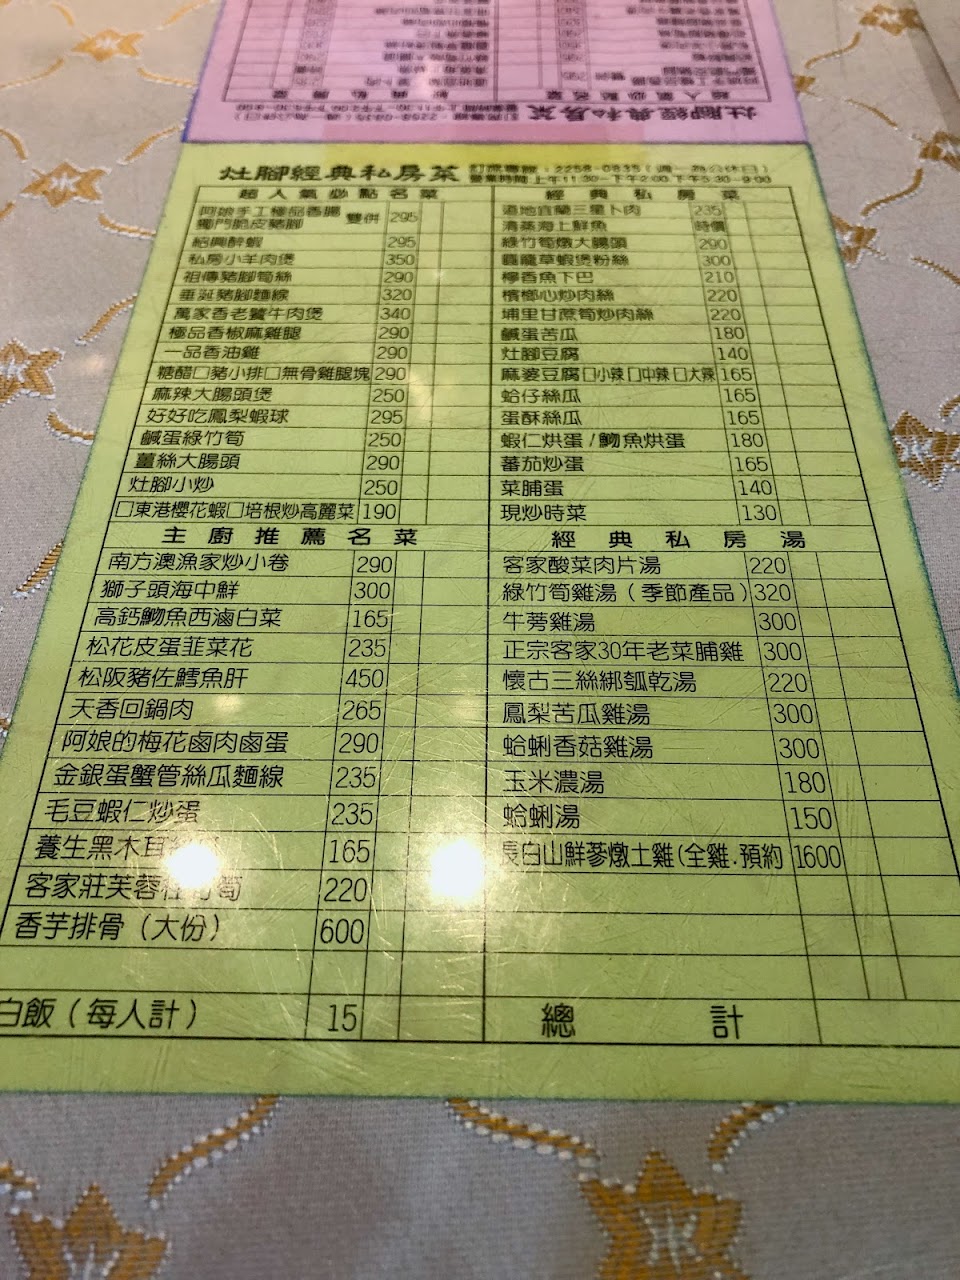 灶腳經典私房菜
訂席專線：2258-0835(週一為公休日)
營業時間 上午11:30~下午2:00 下午5:30~9:00
超人氣必點名菜
阿娘手工極品香腸
獨門脆皮豬腳 雙併 295
紹興醉蝦 295
私房小羊肉煲 350
祖傳豬腳筍絲 290
垂涎豬腳麵線 320
萬家香老饕牛肉煲 340
極品香椒麻雞腿 290
一品香油雞 290
糖醋□豬小排□無骨雞腿塊 290
麻辣大腸頭煲 250
好好吃鳳梨蝦球 295
鹹蛋綠竹筍 250
薑絲大腸頭 290
灶腳小炒 250
□東港櫻花蝦□培根炒高麗菜 190
主廚推薦名菜
南方澳漁家炒小卷 290
獅子頭海中鮮 300
高鈣魩魚西滷白菜 165
松花皮蛋韮菜花 235
松阪豬佐鱈魚肝 450
天香回鍋肉 265
阿娘的梅花鹵肉鹵蛋 290
金銀蛋蟹管絲瓜麵線 235
毛豆蝦仁炒蛋 235
養生黑木耳 165
客家莊芙蓉 筍 220
香芋排骨（大份） 600
白飯（每人計） 15
經典私房菜
道地宜蘭三星卜肉 235
清蒸海上鮮魚 時價
綠竹筍燉大腸頭 290
龍草蝦煲粉絲 300
檸香魚下巴 210
檳榔心炒肉絲 220
埔里甘蔗筍炒肉絲 220
鹹蛋苦瓜 180
灶腳豆腐 140
麻婆豆腐□小辣□中辣□大辣 165
蛤仔絲瓜 165
蛋酥絲瓜 165
蝦仁烘蛋/魩魚烘蛋 180
蕃茄炒蛋 165
菜脯蛋 140
現炒時菜 130
經典私房湯
客家酸菜肉片湯 220
綠竹筍雞湯（季節產品） 320
牛蒡雞湯 300
正宗客家30年老菜脯雞 300
懷古三絲綁瓠乾湯 220
鳳梨苦瓜雞湯 300
蛤蜊香菇雞湯 300
玉米濃湯 180
蛤蜊湯 150
長白山鮮蔘燉土雞(全雞.預約 1600
總計